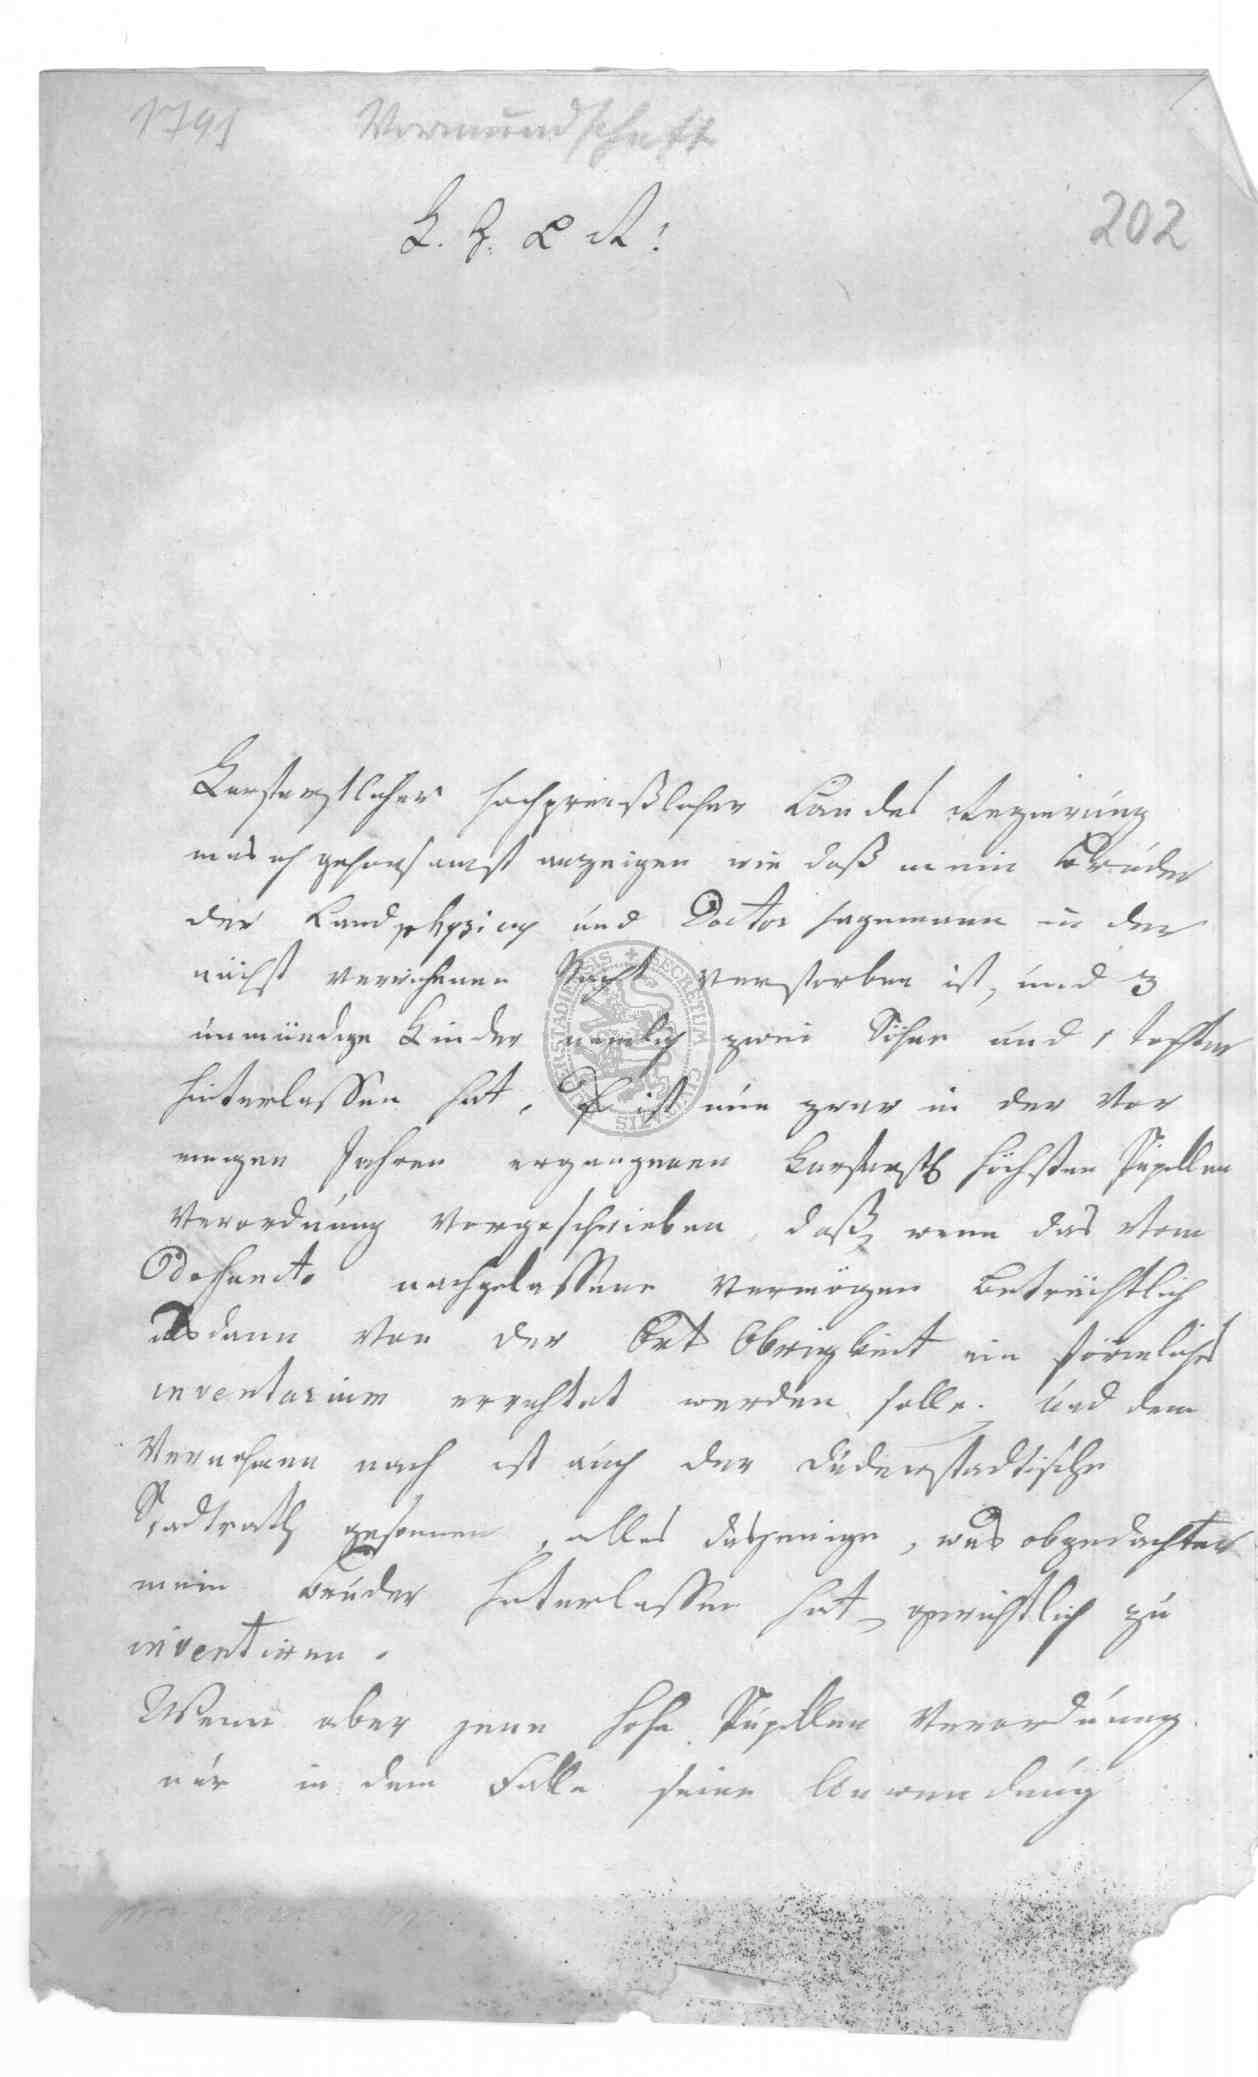 1791 Vormundschaft
K. H. L R!
202
Kurfürstlicher hochpreißlicher Landes Regierung
mus ich gehorsamst anzeigen wie daß mein Bruder
der Landphysicus und Doctor Hagemann in der
nächst verwichenen Nacht verstorben ist, und 3
unmündige Kinder nemlich zwei Söhne und 1 Tochter
hinterlassen hat. Es ist nun zwar in der vor
einigen Jahren ergangenen Kurfürstl höchsten Pupillen
Verordnung vorgeschrieben, daß, wenn das vom
Defuncto nachgelassene Vermögen beträchtlich
alsdann von der Ort Obrigkeit ein förmliches
inventarium errichtet werden solle. Und dem
Vernehmen nach ist auch der duderstadtische
Stadtrath gesonnen, alles dasjenige, was obgedachter
mein Bruder hinterlassen hat, gerichtlich zu
inventiren.
Wenn aber jene hohe Pupillen Verordnung
nur in dem Falle seine Anwendung
SECRETUM CIVITATIS